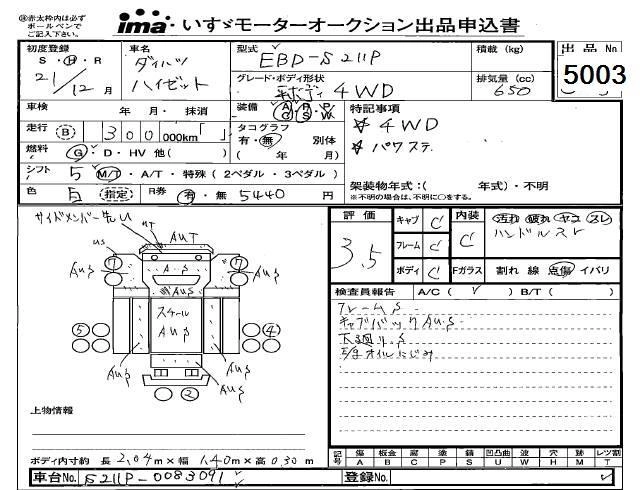 ※赤太枠内は必ずボールペンでご記入下さい。
ima いすゞモーターオークション出品申込書
初度登録 S・H・R 21/12月
車名 ダイハツ ハイゼット
型式 EBD-S211P
積載 (kg)
出品No 5003
グレード・ボディ形状 4WD
排気量 (cc) 650
車検 年 月・ 抹消
装備 A P P C S W
特記事項
走行 B 300 000km「 」
タコグラフ 有・無 別体 ( 年 月)
☆ 4WD
☆ パワステ
燃料 G・D・HV 他( )
シフト 5 M/T・A/T・特殊(2ペダル・3ペダル)
架装物年式:( 年式)・不明
※不明の場合は、不明に○をする。
色 白 指定 R券 有・無 5440円
サイドメンバー先U
評価 3.5
キャブ C
フレーム C
ボディ C
内装 C
汚れ 破れ ヤコ スレ
ハンドルスレ
Fガラス 割れ 線 点傷 イバリ
uT
AUT
us
7
7
AUS
AUS
AUS
検査員報告 A/C( ✓ ) B/T( )
フレームS
キャブバックAUS
下廻りS
E/Gオイルにじみ
スケール
AUS
5
4
AUS
AUS
2
上物情報
ボディ内寸約 長 2.04m×幅 1.40m×高 0.30m
記号 傷A 板金B 腐C 塗P 錆S 凹凸曲U 波W 穴H 跡M レツ割T
車台No. S211P-0083091
登録No.